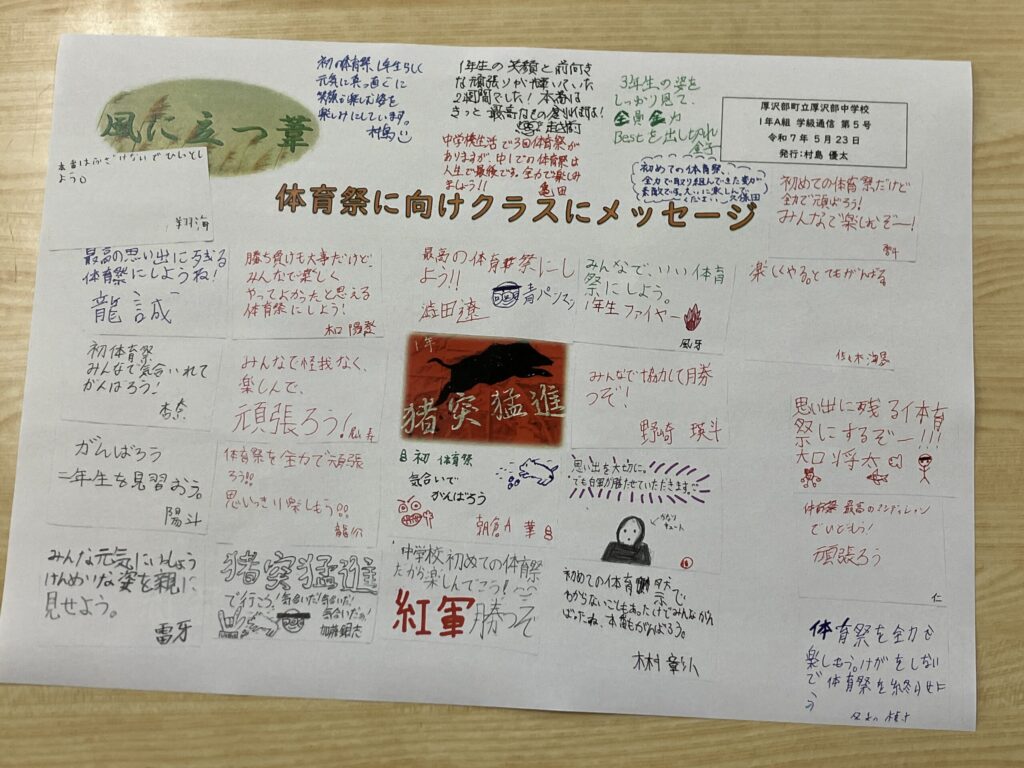 風に立つ葦
初の体育祭、1年生らしく
元気に真っ直ぐに
笑顔で楽しむ姿を
楽しみにしています。
村島
1年生の笑顔と前向き
な頑張りが輝いていた
2週間でした!本番は
きっと最高なもの
中学校生活で3回体育祭が
ありますが、中1での体育祭は
人生で最後です。全力で楽しみ
ましょう!!
亀田
3年生の姿を
しっかり見て、
全員全力
Bestを出し切れ
金子
初めての体育祭、
全力で取り組んできた姿が
素敵です。大いに楽しんで
ください。久保田
厚沢部町立厚沢部中学校
1年A組 学級通信 第5号
令和7年 5月23日
発行:村島 優太
本番はふざけないでひっし
よう。
翔海
体育祭に向けクラスにメッセージ
初めての体育祭だけど
全力で頑張ろう!
みんなで楽しむぞー!
最高の思い出に残る
体育祭にしようね!
龍誠
勝ち負けも大事だけど、
みんなで楽しく
やってよかったと思える
体育祭にしよう!
最高の体育祭にし
よう!!
澁田遼
青パンマン
みんなで、いい体育
祭にしよう。
1年生ファイヤー
風牙
楽しくやる。とてもがんばる
佐々木
初体育祭
みんなで気合いれて
がんばろう!
杏奈
みんなで怪我なく、
楽しんで、
頑張ろう!
1年
猪突猛進
みんなで協力して勝
つぞ!
野崎 瑛斗
思い出に残る体育
祭にするぞー!!!
大口将太
がんばろう
二年生を見習おう。
陽斗
体育祭を全力で頑張
ろう!!
思いっきり楽しもう!!
初 体育祭
気合いで
がんばろう
朝倉
思い出を大切に。
でも白軍が勝たせていただきます。
かなり
キュート
体育祭 最高のコンディション
でいどもう!
頑張ろう
仁
みんな元気にいっしょう
けんめいな姿を親に
見せよう。
雷牙
猪突猛進
で行こう!
気合いだ!気合いだ!
気合いだぁ!
加藤
中学校初めての体育祭
だから楽しんでこう!
紅軍勝つぞ
初めての体育祭で
わからないこともあったけどみんながん
ばったね、本番もがんばろう。
木村
体育祭を全力で
楽しもう。けがをしない
で体育祭を終わらせよ
う